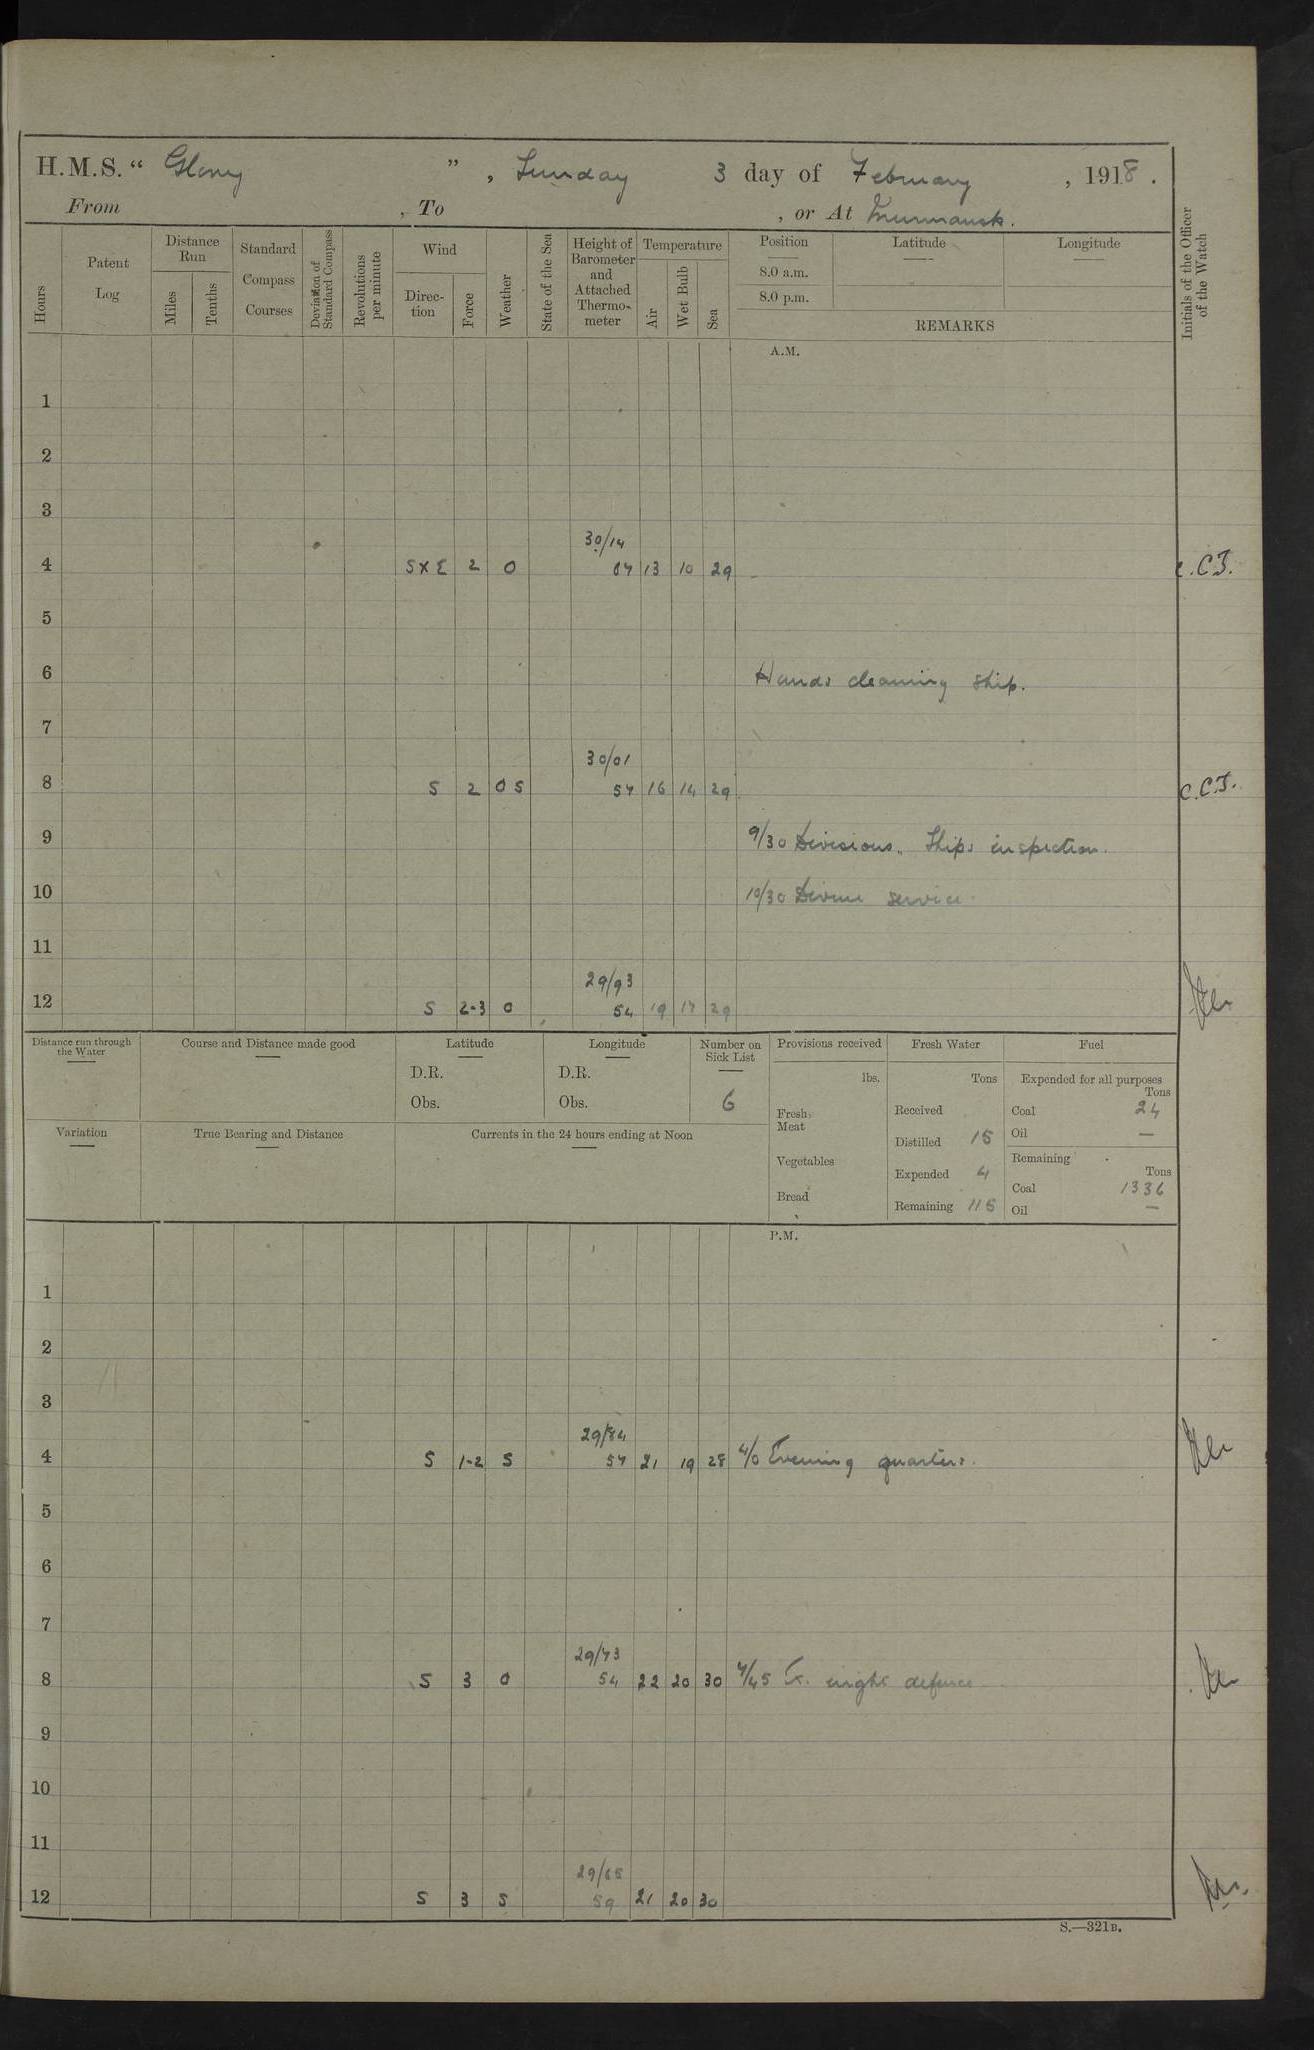 H.M.S. “ Glory ” , Sunday 3 day of February , 1918 .
From , To , or At Murmansk.
Hours
Patent Log
Distance Run
Miles
Tenths
Standard Compass Courses
Deviation of Standard Compass
Revolutions per minute
Wind
Direction
Force
Weather
State of the Sea
Height of Barometer and Attached Thermometer
Temperature
Air
Wet Bulb
Sea
Position
8.0 a.m.
8.0 p.m.
Latitude
Longitude
REMARKS
Initials of the Officer of the Watch
A.M.
1
2
3
30/14
4 S X E 2 O 13 10 29 C.C.T.
5
6 Hands cleaning ship.
7
30/01
8 S 2 O S 57 16 14 29 C.C.T.
9 9/30 Divisions. Ships inspection.
10 10/30 Divine service.
11
29/93
12 S 2-3 O 54 19 17 29
Distance run through the Water
Course and Distance made good
Latitude
D.R.
Obs.
Longitude
D.R.
Obs.
Number on Sick List
6
Provisions received
lbs.
Fresh Meat
Vegetables
Bread
Fresh Water
Tons
Received
Distilled 15
Expended 4
Remaining 115
Fuel
Expended for all purposes
Tons
Coal 24
Oil —
Remaining
Tons
Coal 1336
Oil —
Variation
True Bearing and Distance
Currents in the 24 hours ending at Noon
P.M.
1
2
3
29/84
4 S 1-2 S 57 21 19 28 4/0 Evening quarters.
5
6
7
29/73
8 S 3 O 54 22 20 30 7/45 Ex. night defence
9
10
11
29/65
12 S 3 S 59 21 20 30
S.—321B.